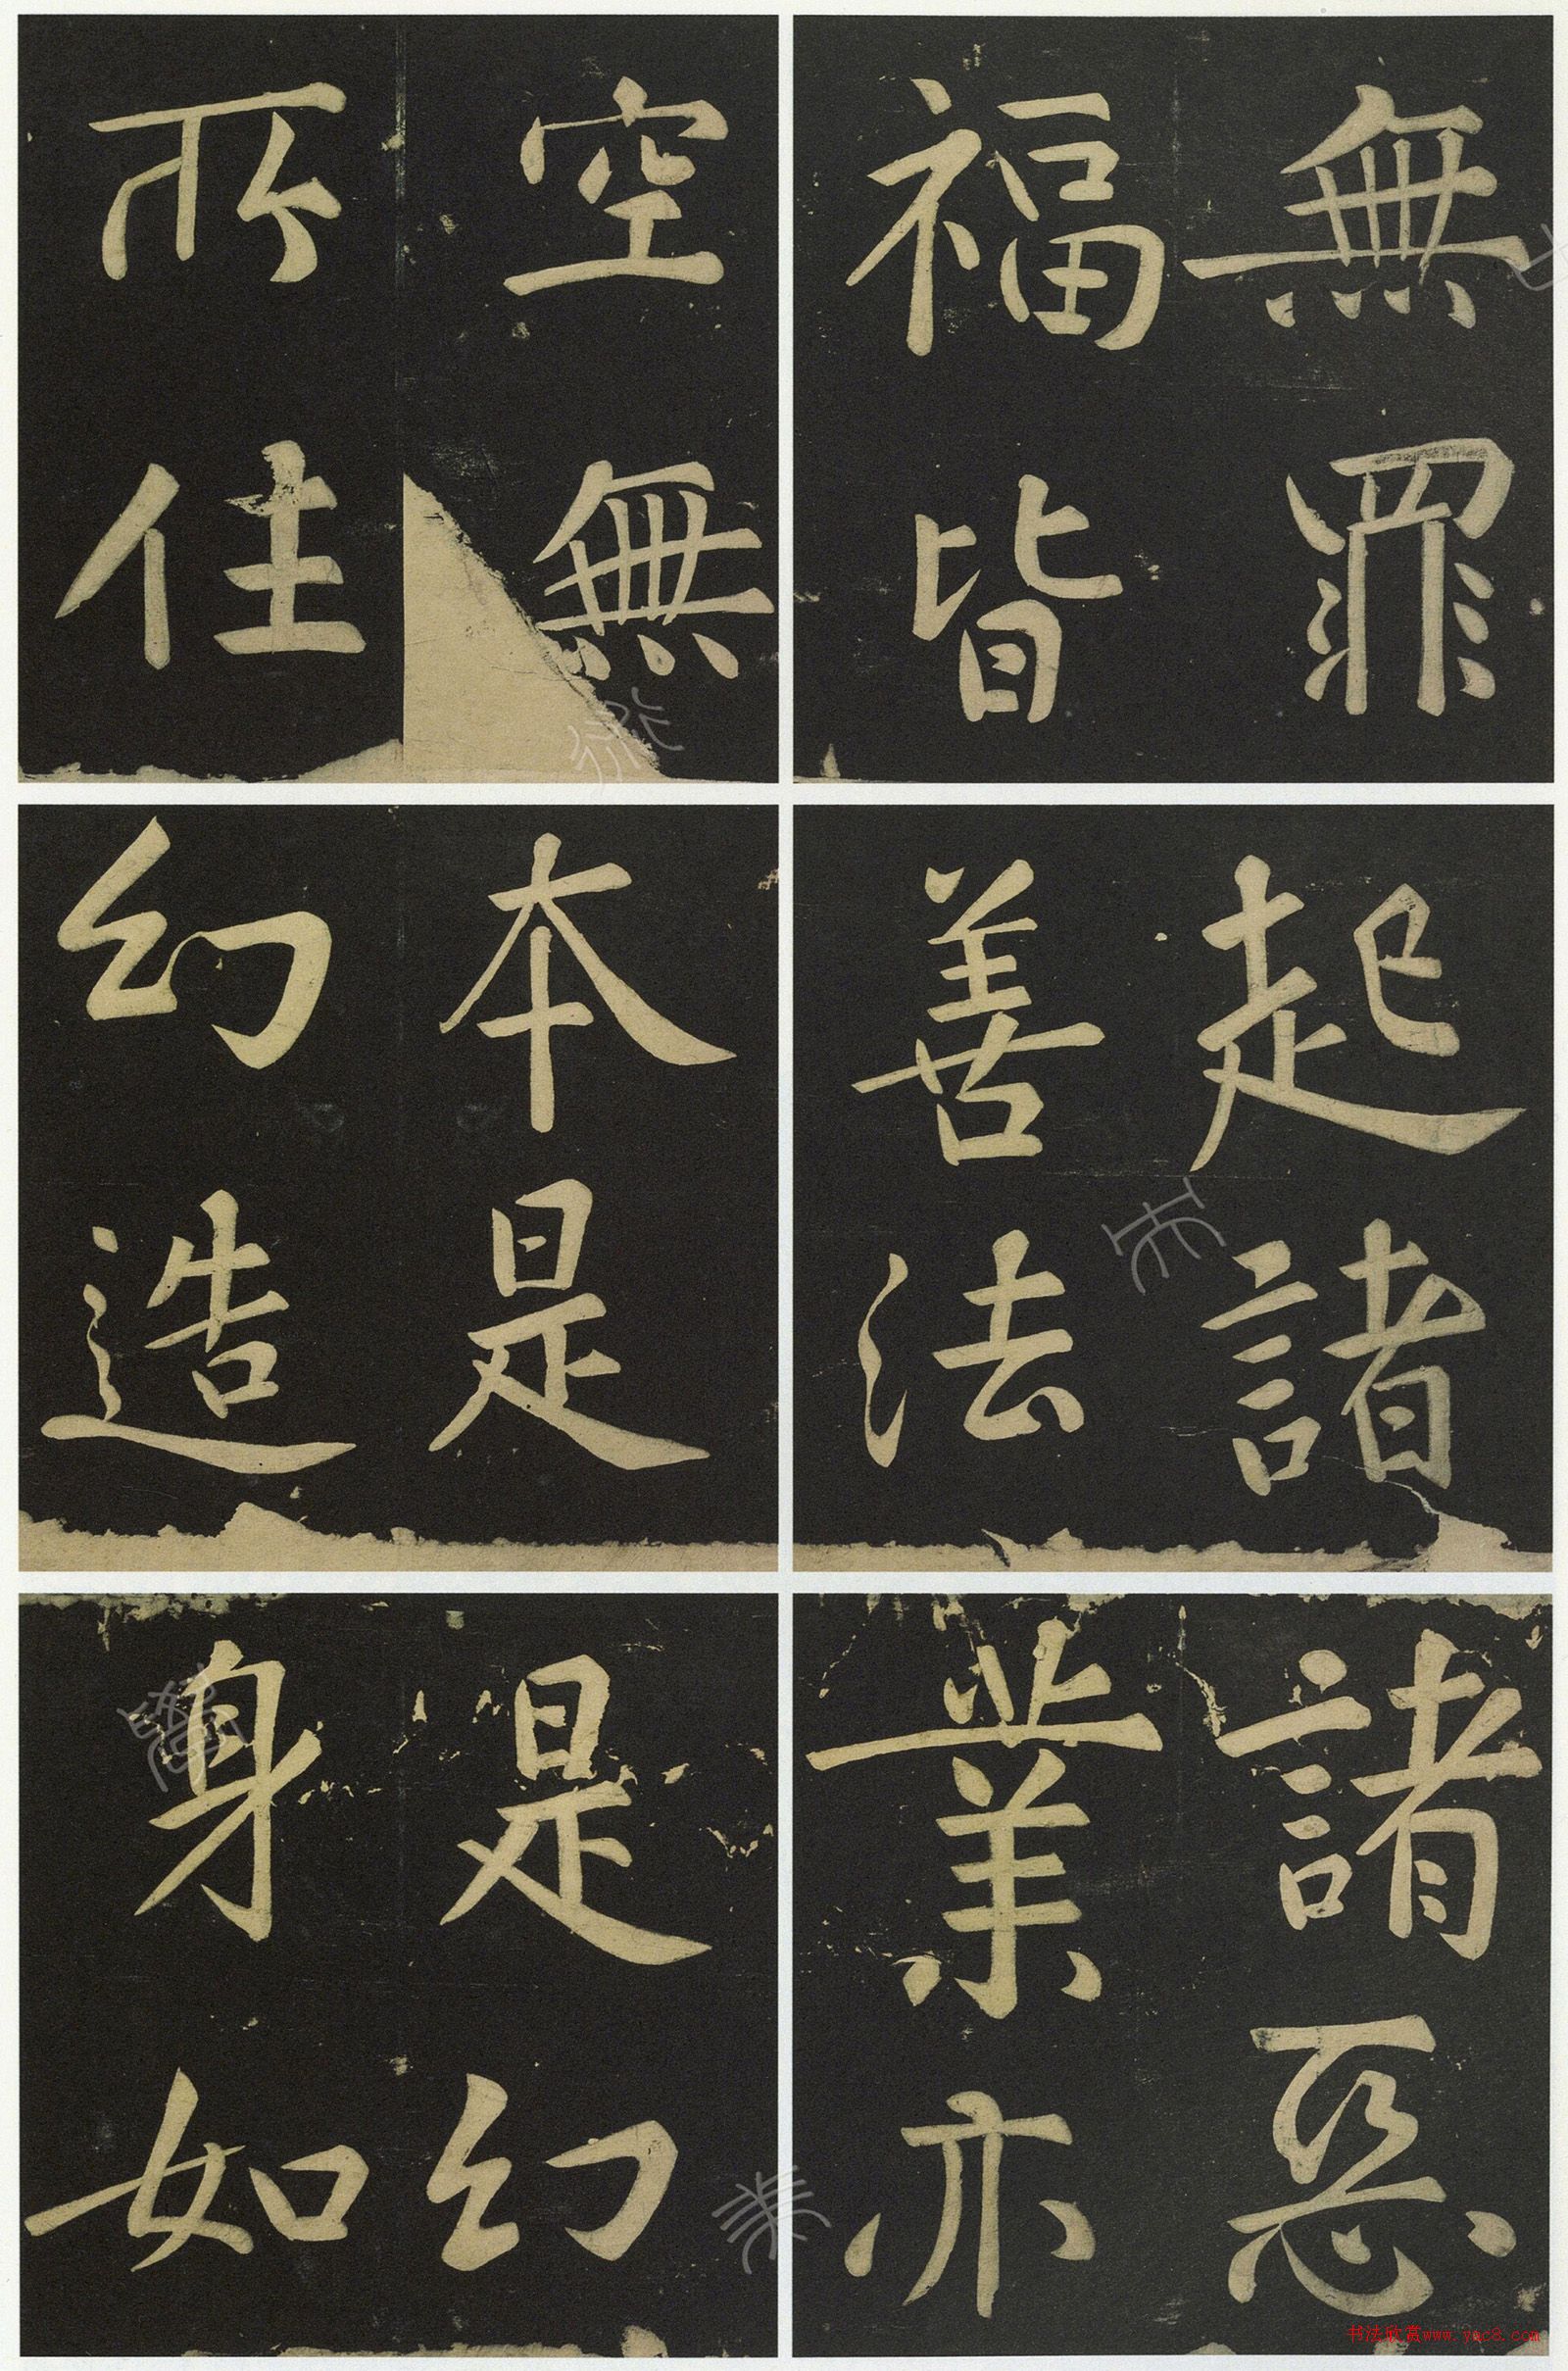 無罪
福皆
空無
所住
起諸
善法
本是
幻造
諸惡
業亦
是幻
身如
书法欣赏www.yac8.com